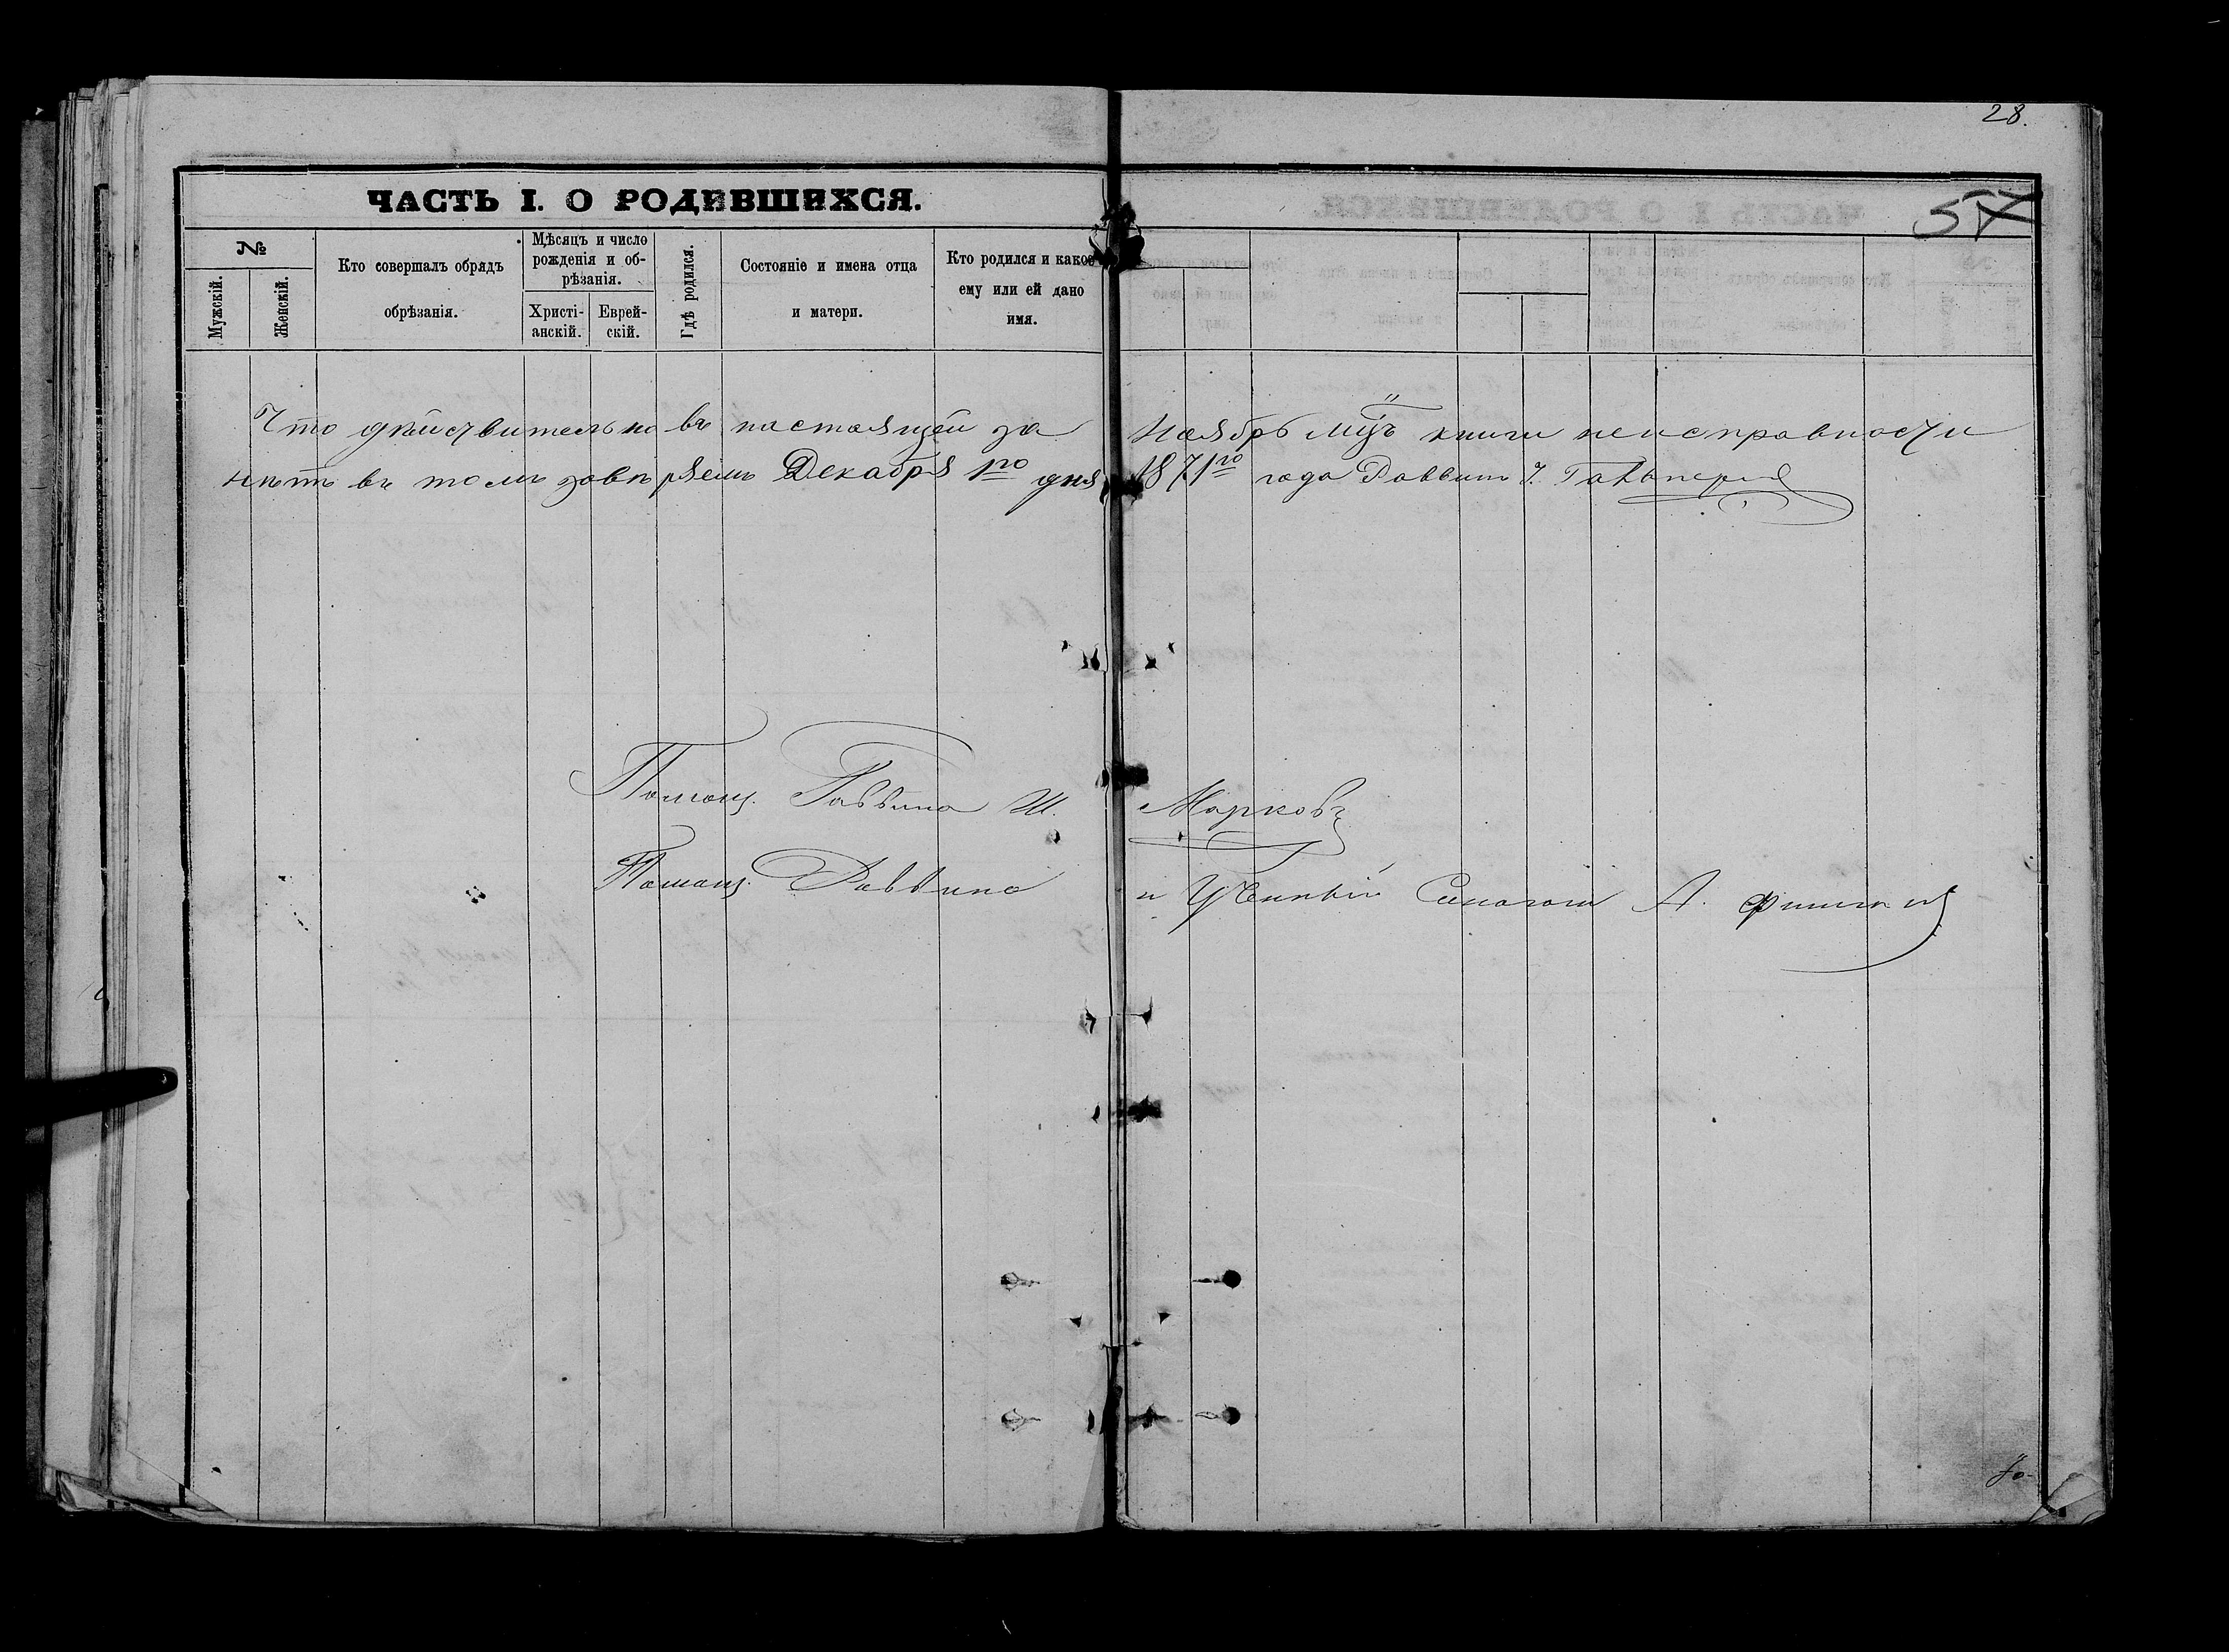 28.
57
ЧАСТЬ I. О РОДИВШИХСЯ.
№
Мужскій.
Женскій.
Кто совершалъ обрядъ
обрѣзанія.
Мѣсяцъ и число
рожденія и об-
рѣзанія.
Христі-
анскій.
Еврей-
скій.
Гдѣ родился.
Состояніе и имена отца
и матери.
Кто родился и какое
ему или ей дано
имя.
Что дѣйствительно въ настоящей за Ноябрь мцъ книги неисправности
нѣтъ въ томъ завѣряемъ Декабря 1го дня 1871го года Раввинъ
Помощ. Раввина Ш. Марковъ
Помощ. Раввина и Ученый А.